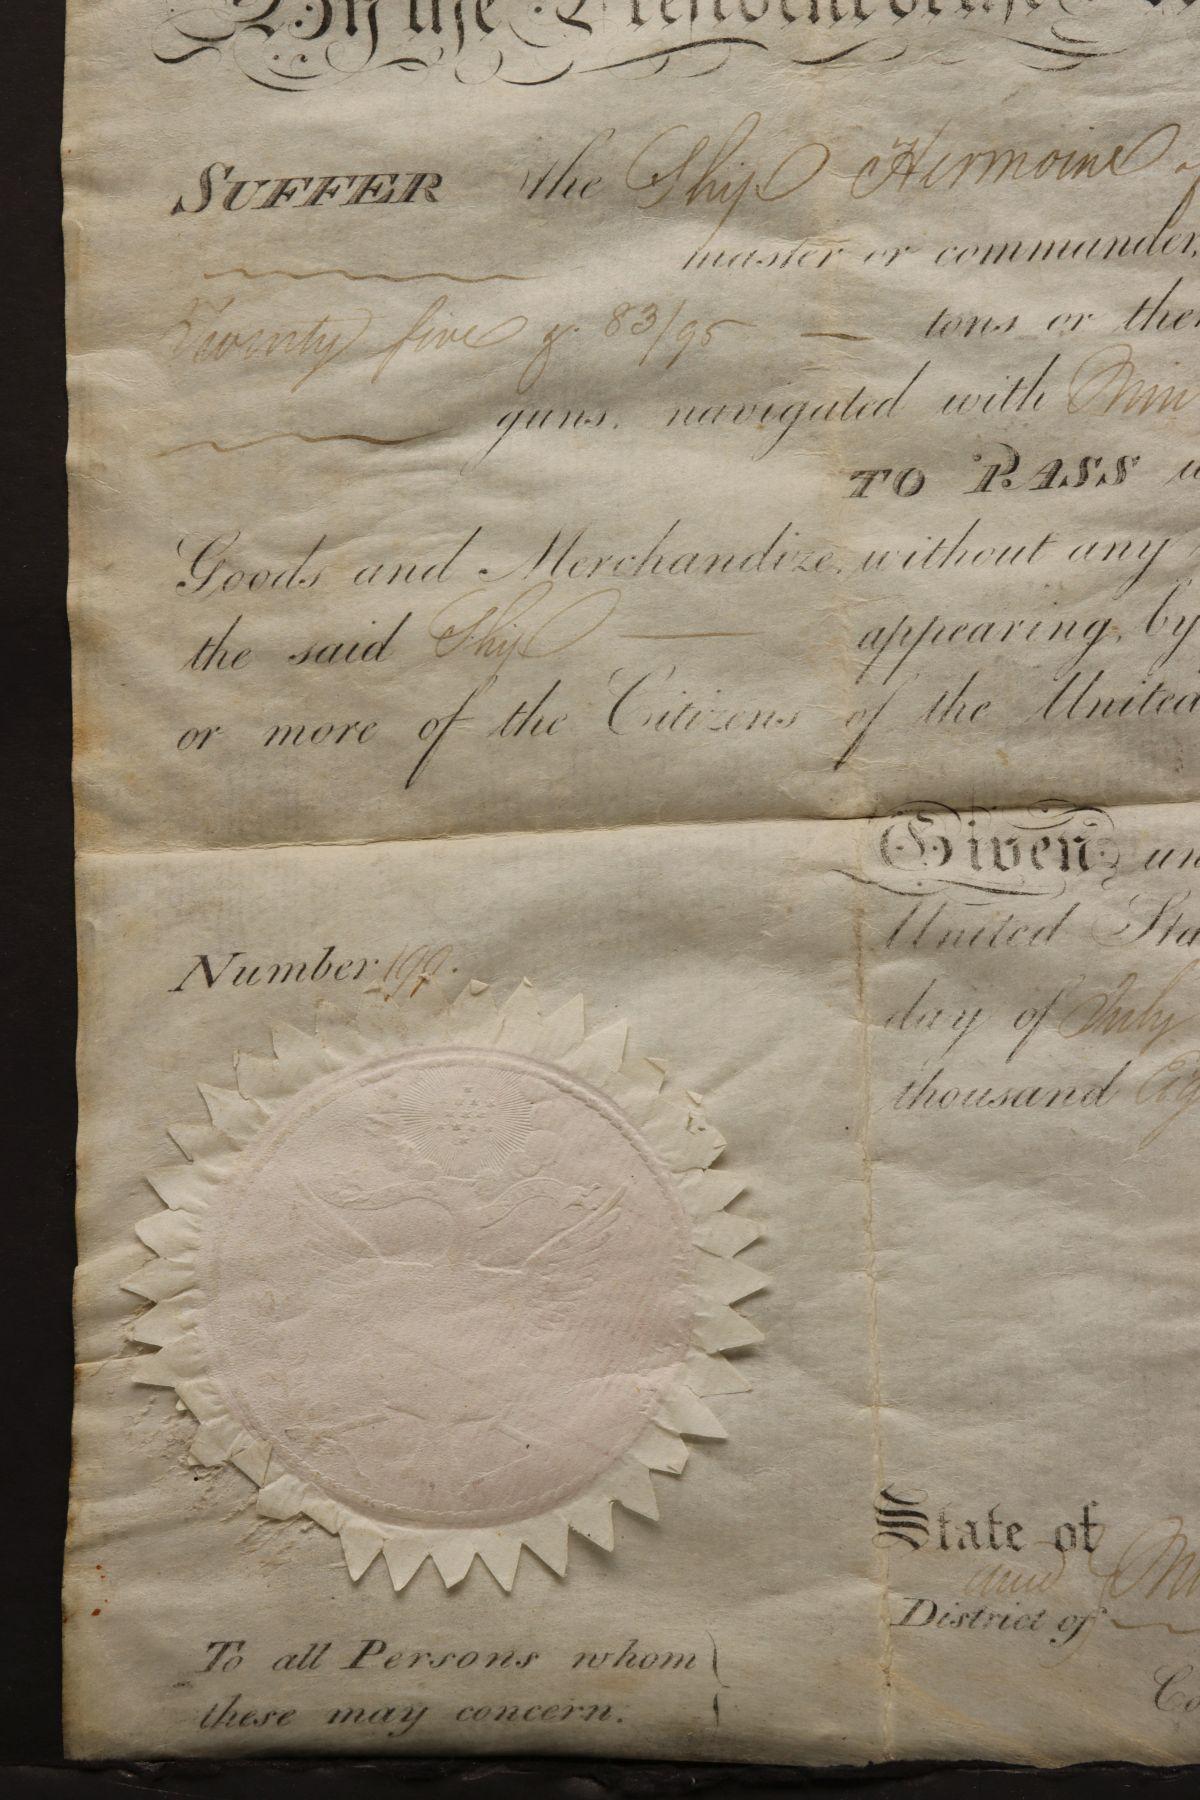 By the President of the
SUFFER the Ship Hermoine of
master or commander,
Twenty five & 83/95 — tons or ther
guns, navigated with Nin
TO PASS
Goods and Merchandize, without any
the said Ship — appearing, by
or more of the Citizens of the United
Given un
United Sta
Number 199.
day of July
thousand Eig
State of
and
District of
To all Persons whom
these may concern.
Co